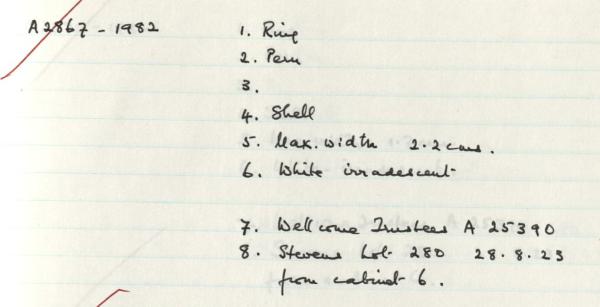 A2867 - 1982
1. Ring
2. Peru
3.
4. Shell
5. Max. width 2.2 cms.
6. White irradescent
7. Wellcome Trustees A 25390
8. Stevens Lot 280 28.8.23
from cabinet 6.